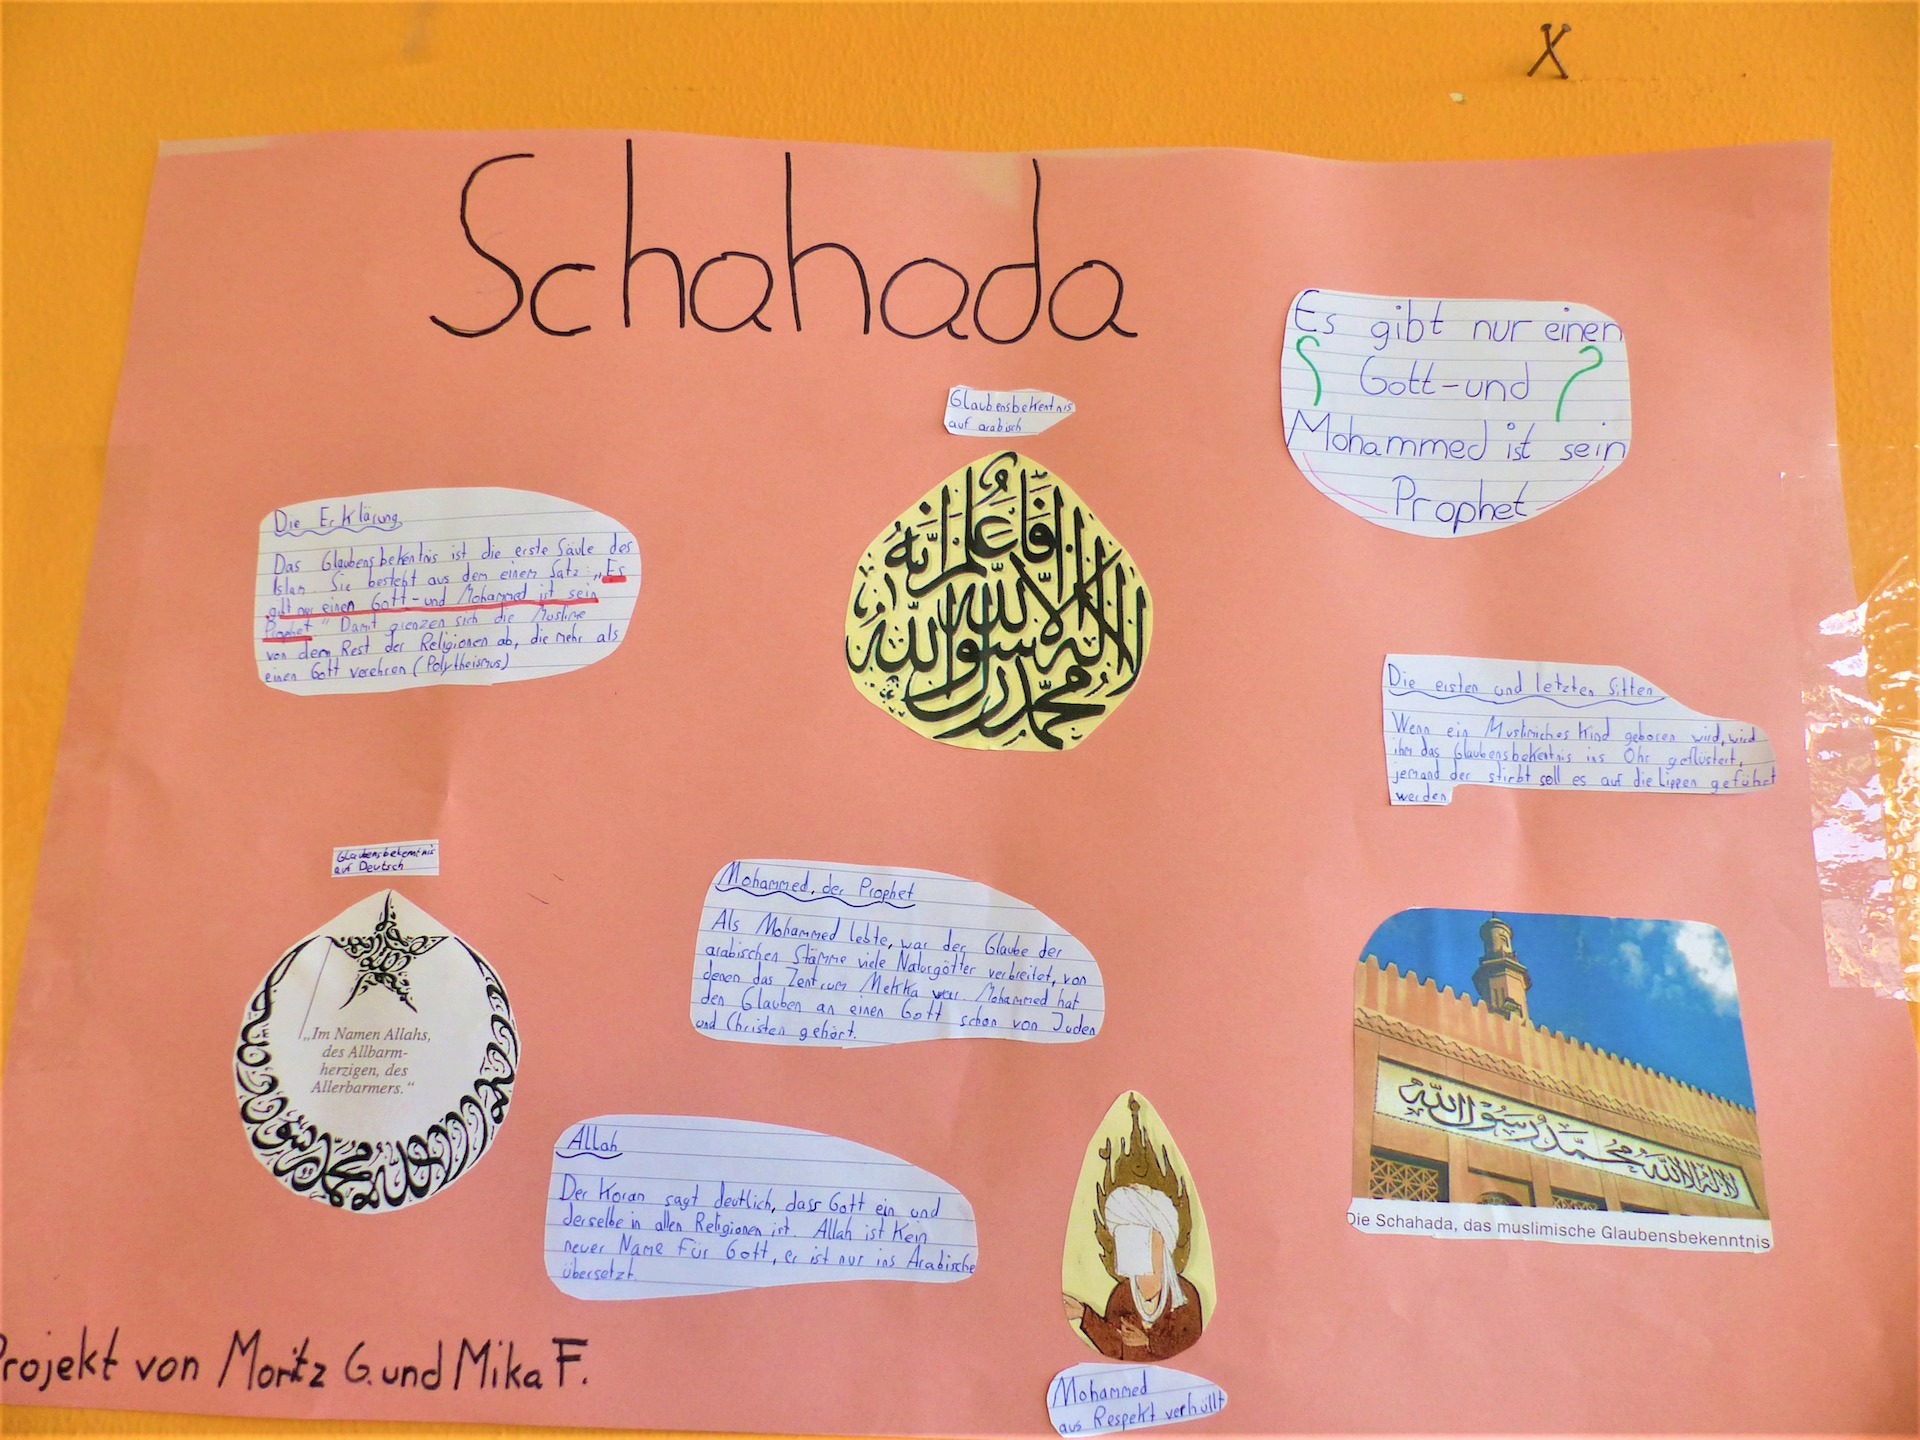 Schahada
Es gibt nur einen
Gott-und
Mohammed ist sein
Prophet
Glaubensbekentnis
auf arabisch
فاعلم انه
لا اله الا الله
محمد رسول الله
Die Erklärung
Das Glaubensbekentnis ist die erste Säule des
Islam. Sie besteht aus dem einem Satz: „Es
gibt nur einen Gott-und Mohammed ist sein
Prophet" Damit grenzen sich die Muslime
von dem Rest der Religionen ab, die mehr als
einen Gott verehren (Polytheismus)
Die ersten und letzten Sitten
Wenn ein Muslimiches Kind geboren wird, wird
ihm das Glaubensbekentnis ins Ohr geflüstert,
jemand der stirbt soll es auf die Lippen geführt
werden
Glaubensbekenntnis
auf Deutsch
„Im Namen Allahs,
des Allbarm-
herzigen, des
Allerbarmers."
Mohammed, der Prophet
Als Mohammed lebte, war der Glaube der
arabischen Stämme viele Naturgötter verbreitet, von
denen das Zentrum Mekka war. Mohammed hat
den Glauben an einen Gott schon von Juden
und Christen gehört.
لا اله الا الله محمد رسول الله
Die Schahada, das muslimische Glaubensbekenntnis
Allah
Der Koran sagt deutlich, dass Gott ein und
derselbe in allen Religionen ist. Allah ist kein
neuer Name für Gott, er ist nur ins Arabische
übersetzt.
Mohammed
aus Respekt verhüllt
Projekt von Moritz G. und Mika F.